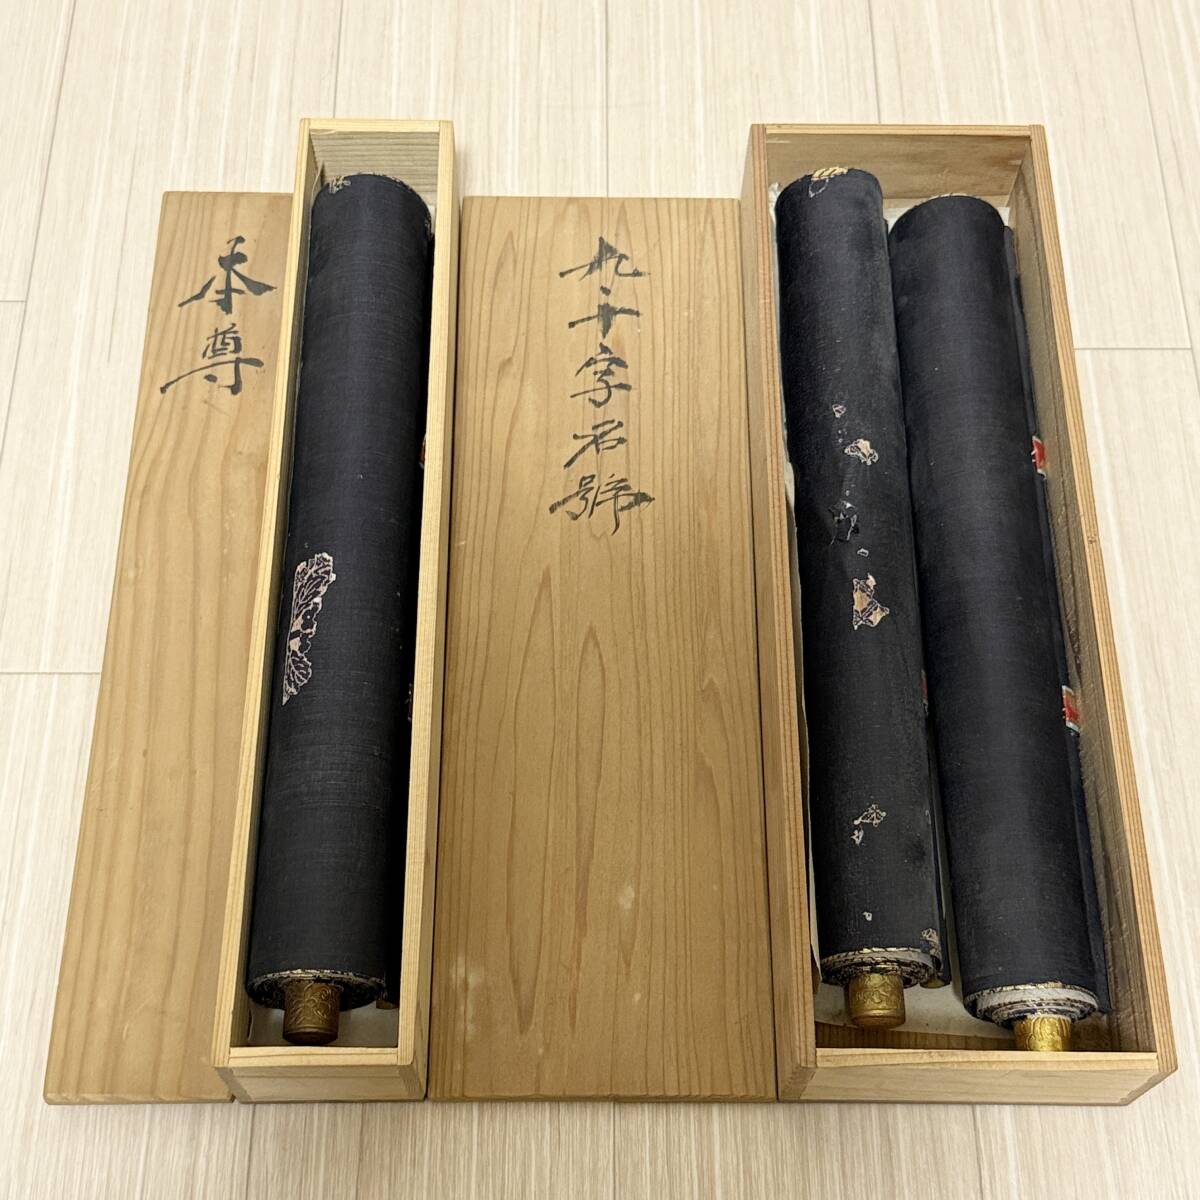 本尊
九十字名號